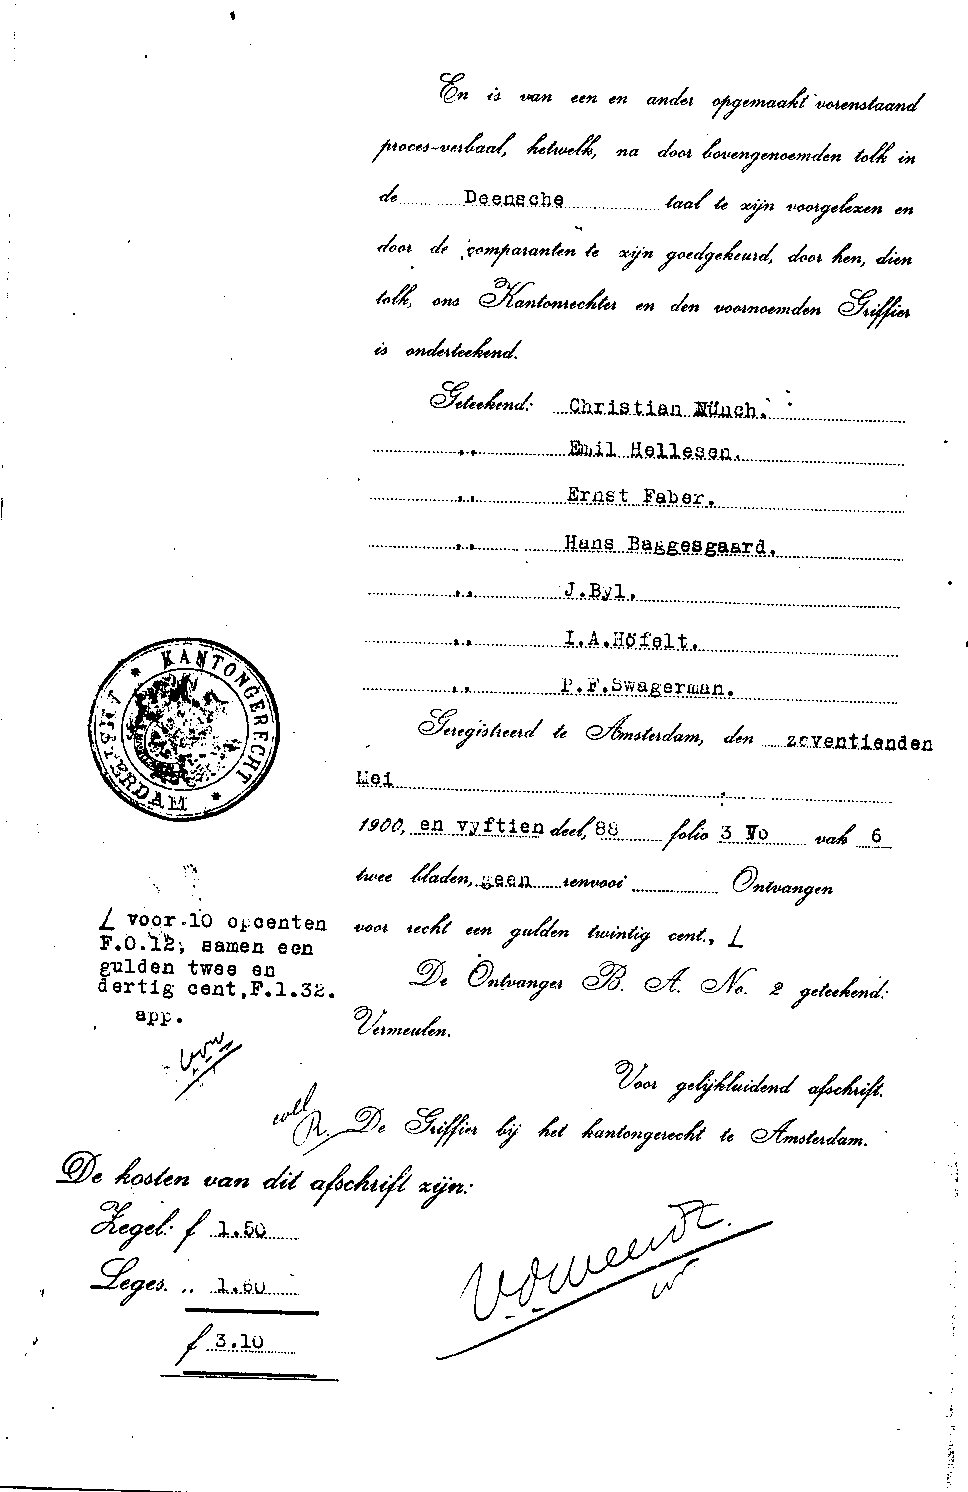 En is van een en ander opgemaakt vorenstaand
proces-verbaal, hetwelk, na door bovengenoemden tolk in
de Deensche taal te zijn voorgelezen en
door de comparanten te zijn goedgekeurd, door hen, dien
tolk, ons Kantonrechter en den voornoemden Griffier
is onderteekend.
Geteekend: Christian Münch.
,, Emil Hellesen.
,, Ernst Faber.
,, Hans Baggesgaard.
,, J.Byl.
,, I.A.Höfelt.
,, P.F.Swagerman.
* KANTONGERECHT * AMSTERDAM
Geregistreerd te Amsterdam, den zeventienden
Mei
1900, en vyftien deel, 88 folio 3 Vo vak 6
twee bladen, geen renvooi Ontvangen
voor recht een gulden twintig cent., L
L voor 10 opcenten
F.0.12; samen een
gulden twee en
dertig cent,F.1.32.
app.
De Ontvanger B. A. No. 2 geteekend:
Vermeulen.
Voor gelijkluidend afschrift.
De Griffier bij het kantongerecht te Amsterdam.
De kosten van dit afschrift zijn:
Zegel: f 1.50
Leges. ,, 1.60
f 3.10